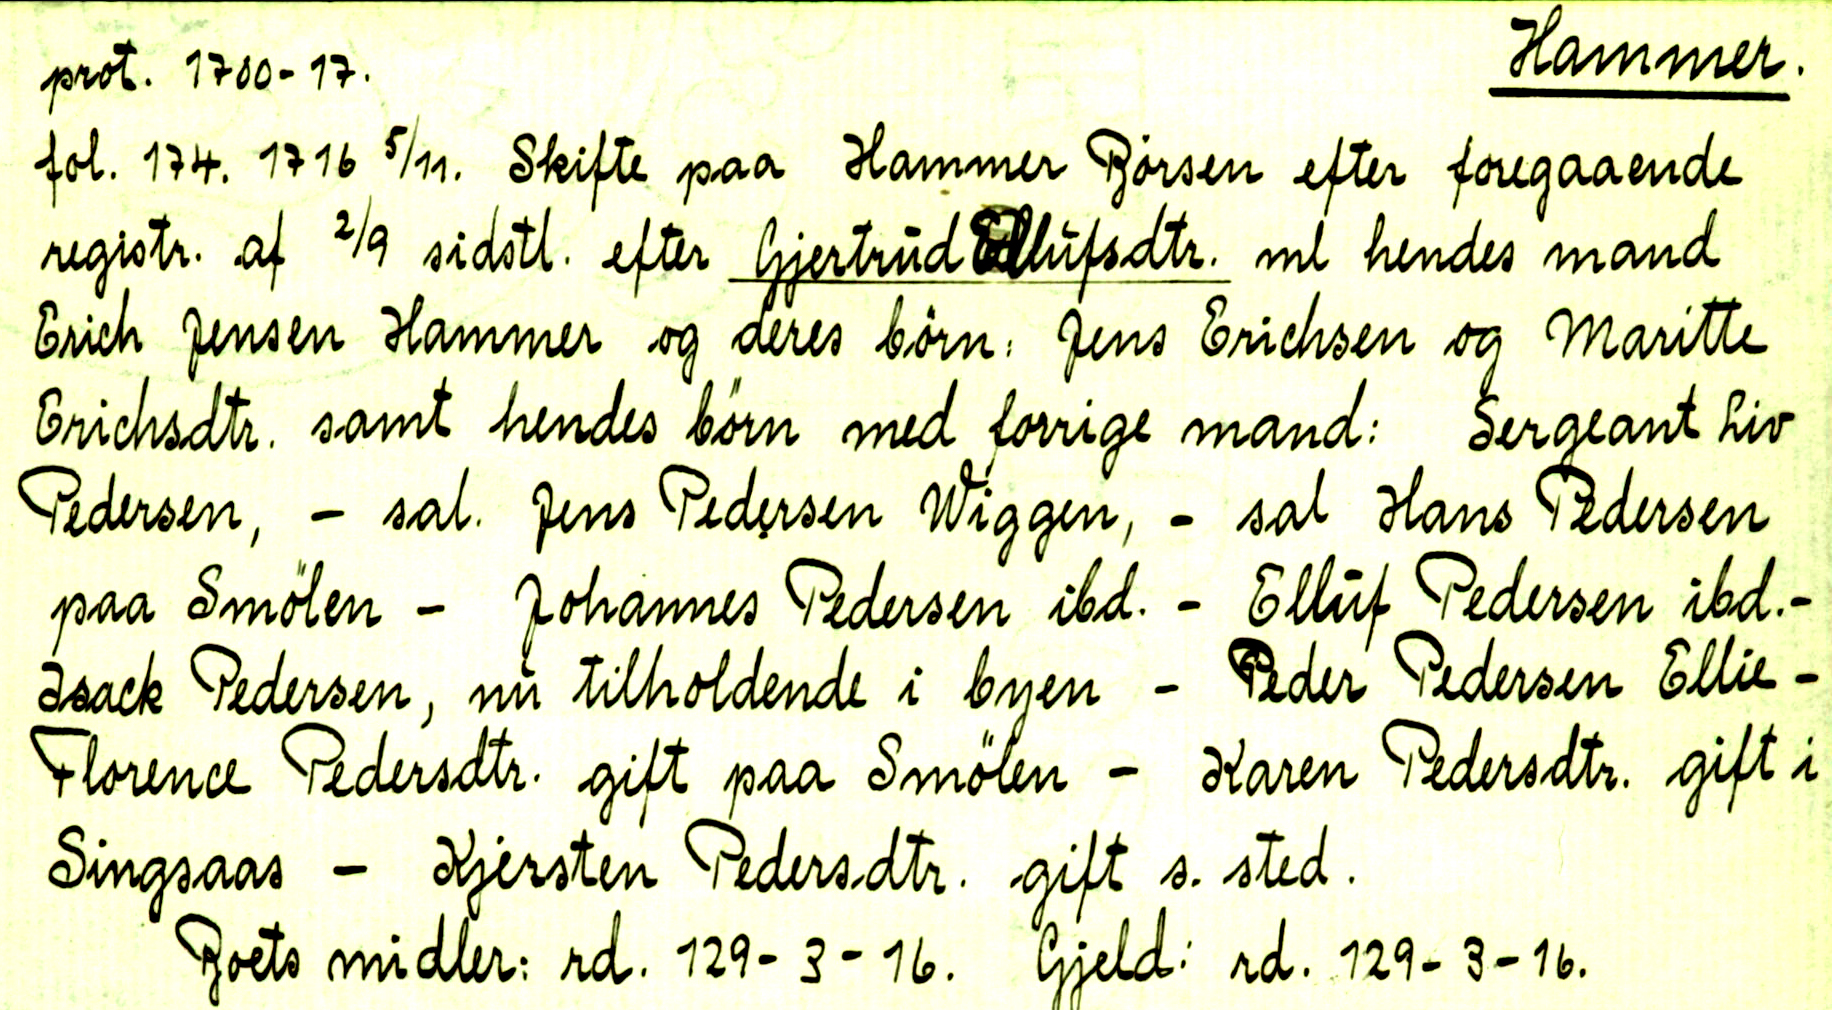 Hammer.
prot. 1700-17.
fol. 174. 1716 5/11. Skifte paa Hammer Börsen efter foregaaende
registr. af 2/9 sidstl. efter Gjertrud Ellufsdtr. ml hendes mand
Erich Jensen Hammer og deres börn: Jens Erichsen og Maritte
Erichsdtr. samt hendes börn med forrige mand: Sergeant Siv
Pedersen, - sal. Jens Pedersen Wiggen, - sal Hans Pedersen
paa Smölen - Johannes Pedersen ibd. - Elluf Pedersen ibd.-
Isack Pedersen, nu tilholdende i byen - Peder Pedersen Ellie -
Florence Pedersdtr. gift paa Smölen - Karen Pedersdtr. gift i
Singsaas - Kjersten Pedersdtr. gift s. sted.
Boets midler: rd. 129- 3 - 16. Gjeld: rd. 129- 3 - 16.